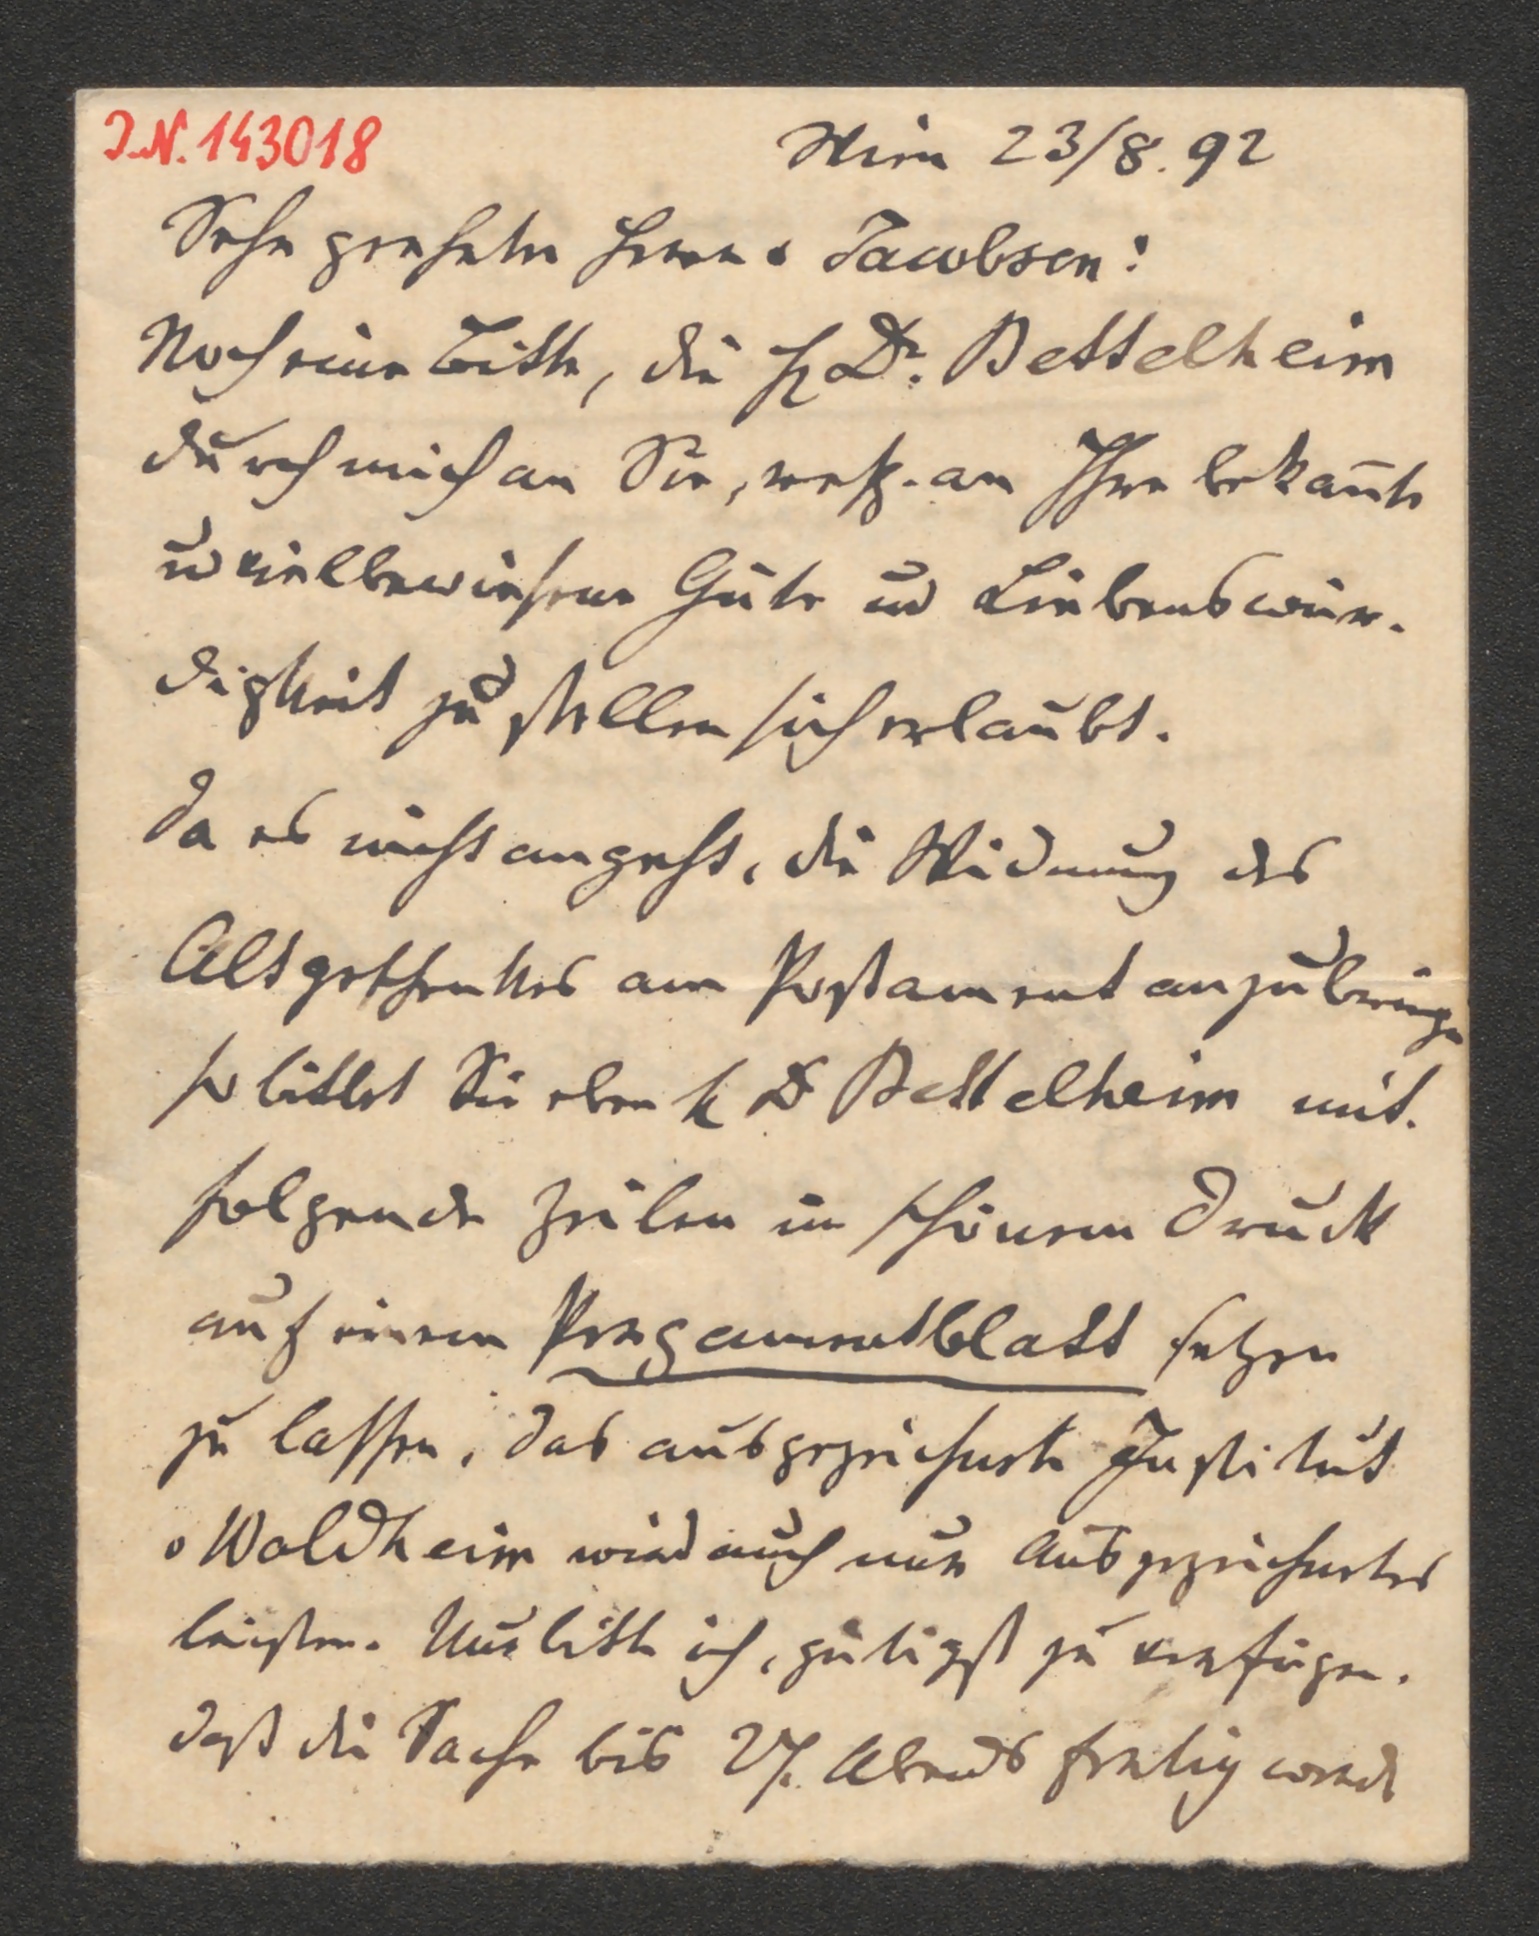 I.N. 143018
Wien 23/8. 92
Sehr geehrter Herr v Jacobsen!
Noch eine Bitte, die H Dr. Bettelheim
durch mich an Sie, resp. an Ihre bekannte
und vielbewiesene Güte und Liebenswür-
digkeit zu stellen sich erlaubt.
Da es nicht angeht, die Widmung des
Altgeschenkes am Postament anzubringen
so bittet Sie eben H Dr Bettelheim mit-
folgende Zeilen in schönem Druck
auf einem Pergamentblatt setzen
zu lassen, das ausgezeichnete Institut
v Waldheim wird auch nur Ausgezeichnetes
leisten. Nur bitte ich, gütigst zu verfügen,
daß die Sache bis 27. Abends fertig werde